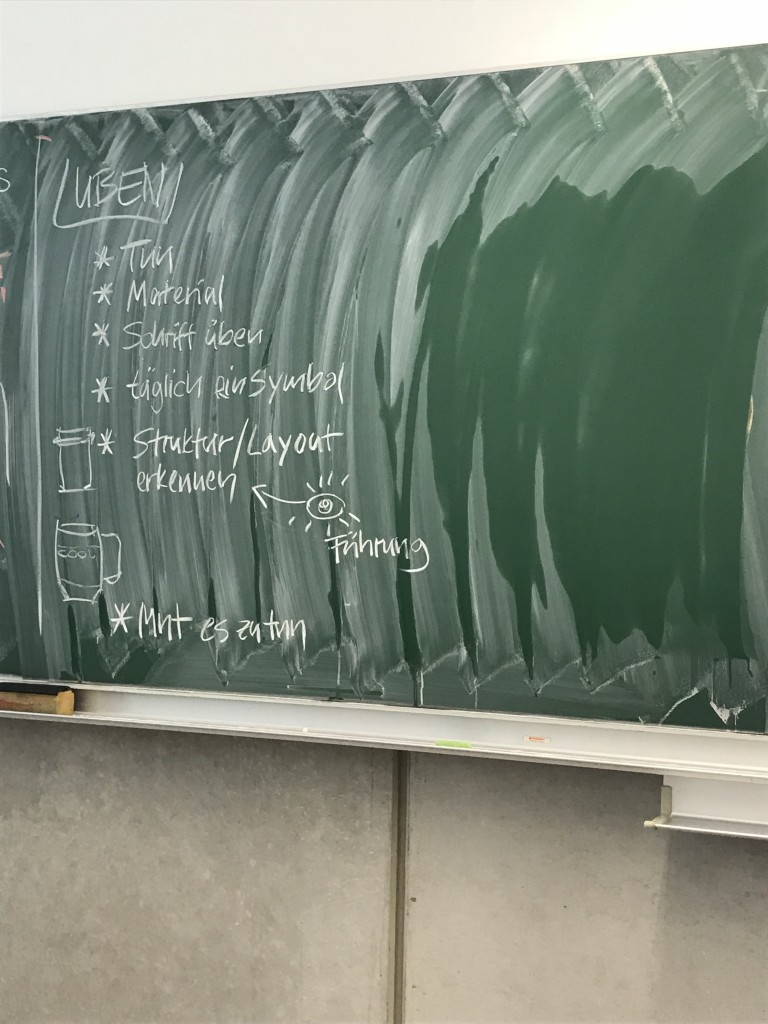 ÜBEN
* Tun
* Material
* Schrift üben
* täglich ein Symbol
* Struktur/Layout
erkennen
Führung
COOL
* Mut es zu tun